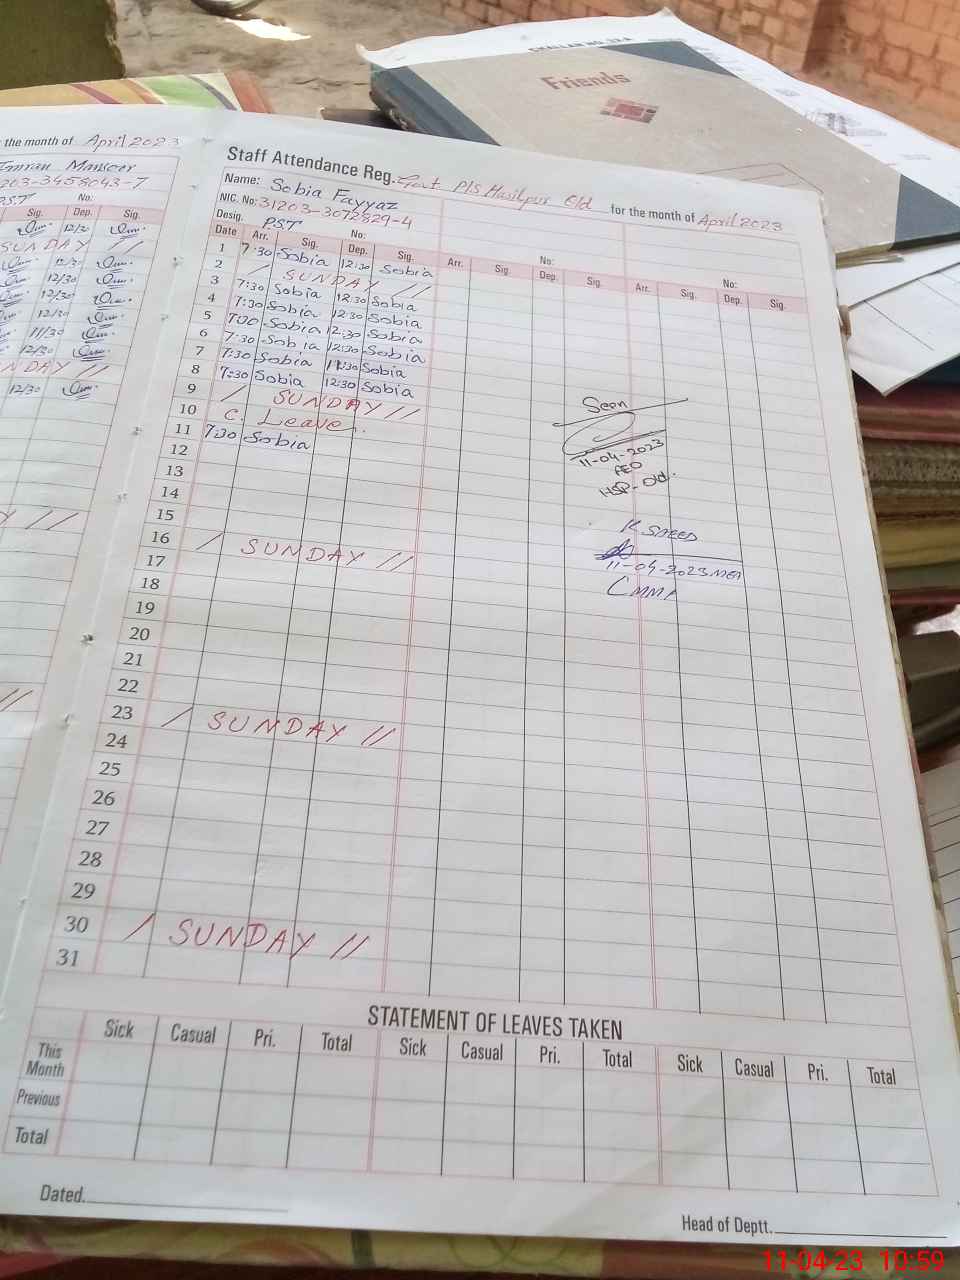 CHALLAN NO. 32.A
Friends
the month of April 2023
Imran Manseer
203-3458043-7
PST No:
Sig. Dep. Sig.
12/30
SUNDAY //
12/30
12/30
12/30
12/30
11/30
12/30
NDAY //
12/30
Staff Attendance Reg. Govt P/S Hasilpur Old for the month of April 2023
Name: Sobia Fayyaz
NIC. No: 31203-3072829-4
Desig. PST No: No: No:
Date Arr. Sig. Dep. Sig. Arr. Sig. Dep. Sig. Arr. Sig. Dep. Sig.
1 7:30 Sobia 12:30 Sobia
2 / SUNDAY //
3 7:30 Sobia 12:30 Sobia
4 7:30 Sobia 12:30 Sobia
5 7:30 Sobia 12:30 Sobia
6 7:30 Sobia 12:30 Sobia
7 7:30 Sobia 11:30 Sobia
8 7:30 Sobia 12:30 Sobia
9 / SUNDAY //
10 C. Leave.
11 7:30 Sobia
12
13
14
15
16 / SUNDAY //
17
18
19
20
21
22
23 / SUNDAY //
24
25
26
27
28
29
30 / SUNDAY //
31
Seen
11-04-2023
AEO
HSP-Old.
K SAEED
11-04-2023 MEA
CMMF
STATEMENT OF LEAVES TAKEN
Sick Casual Pri. Total Sick Casual Pri. Total Sick Casual Pri. Total
This Month
Previous
Total
Dated.
Head of Deptt.
11-04-23 10:59